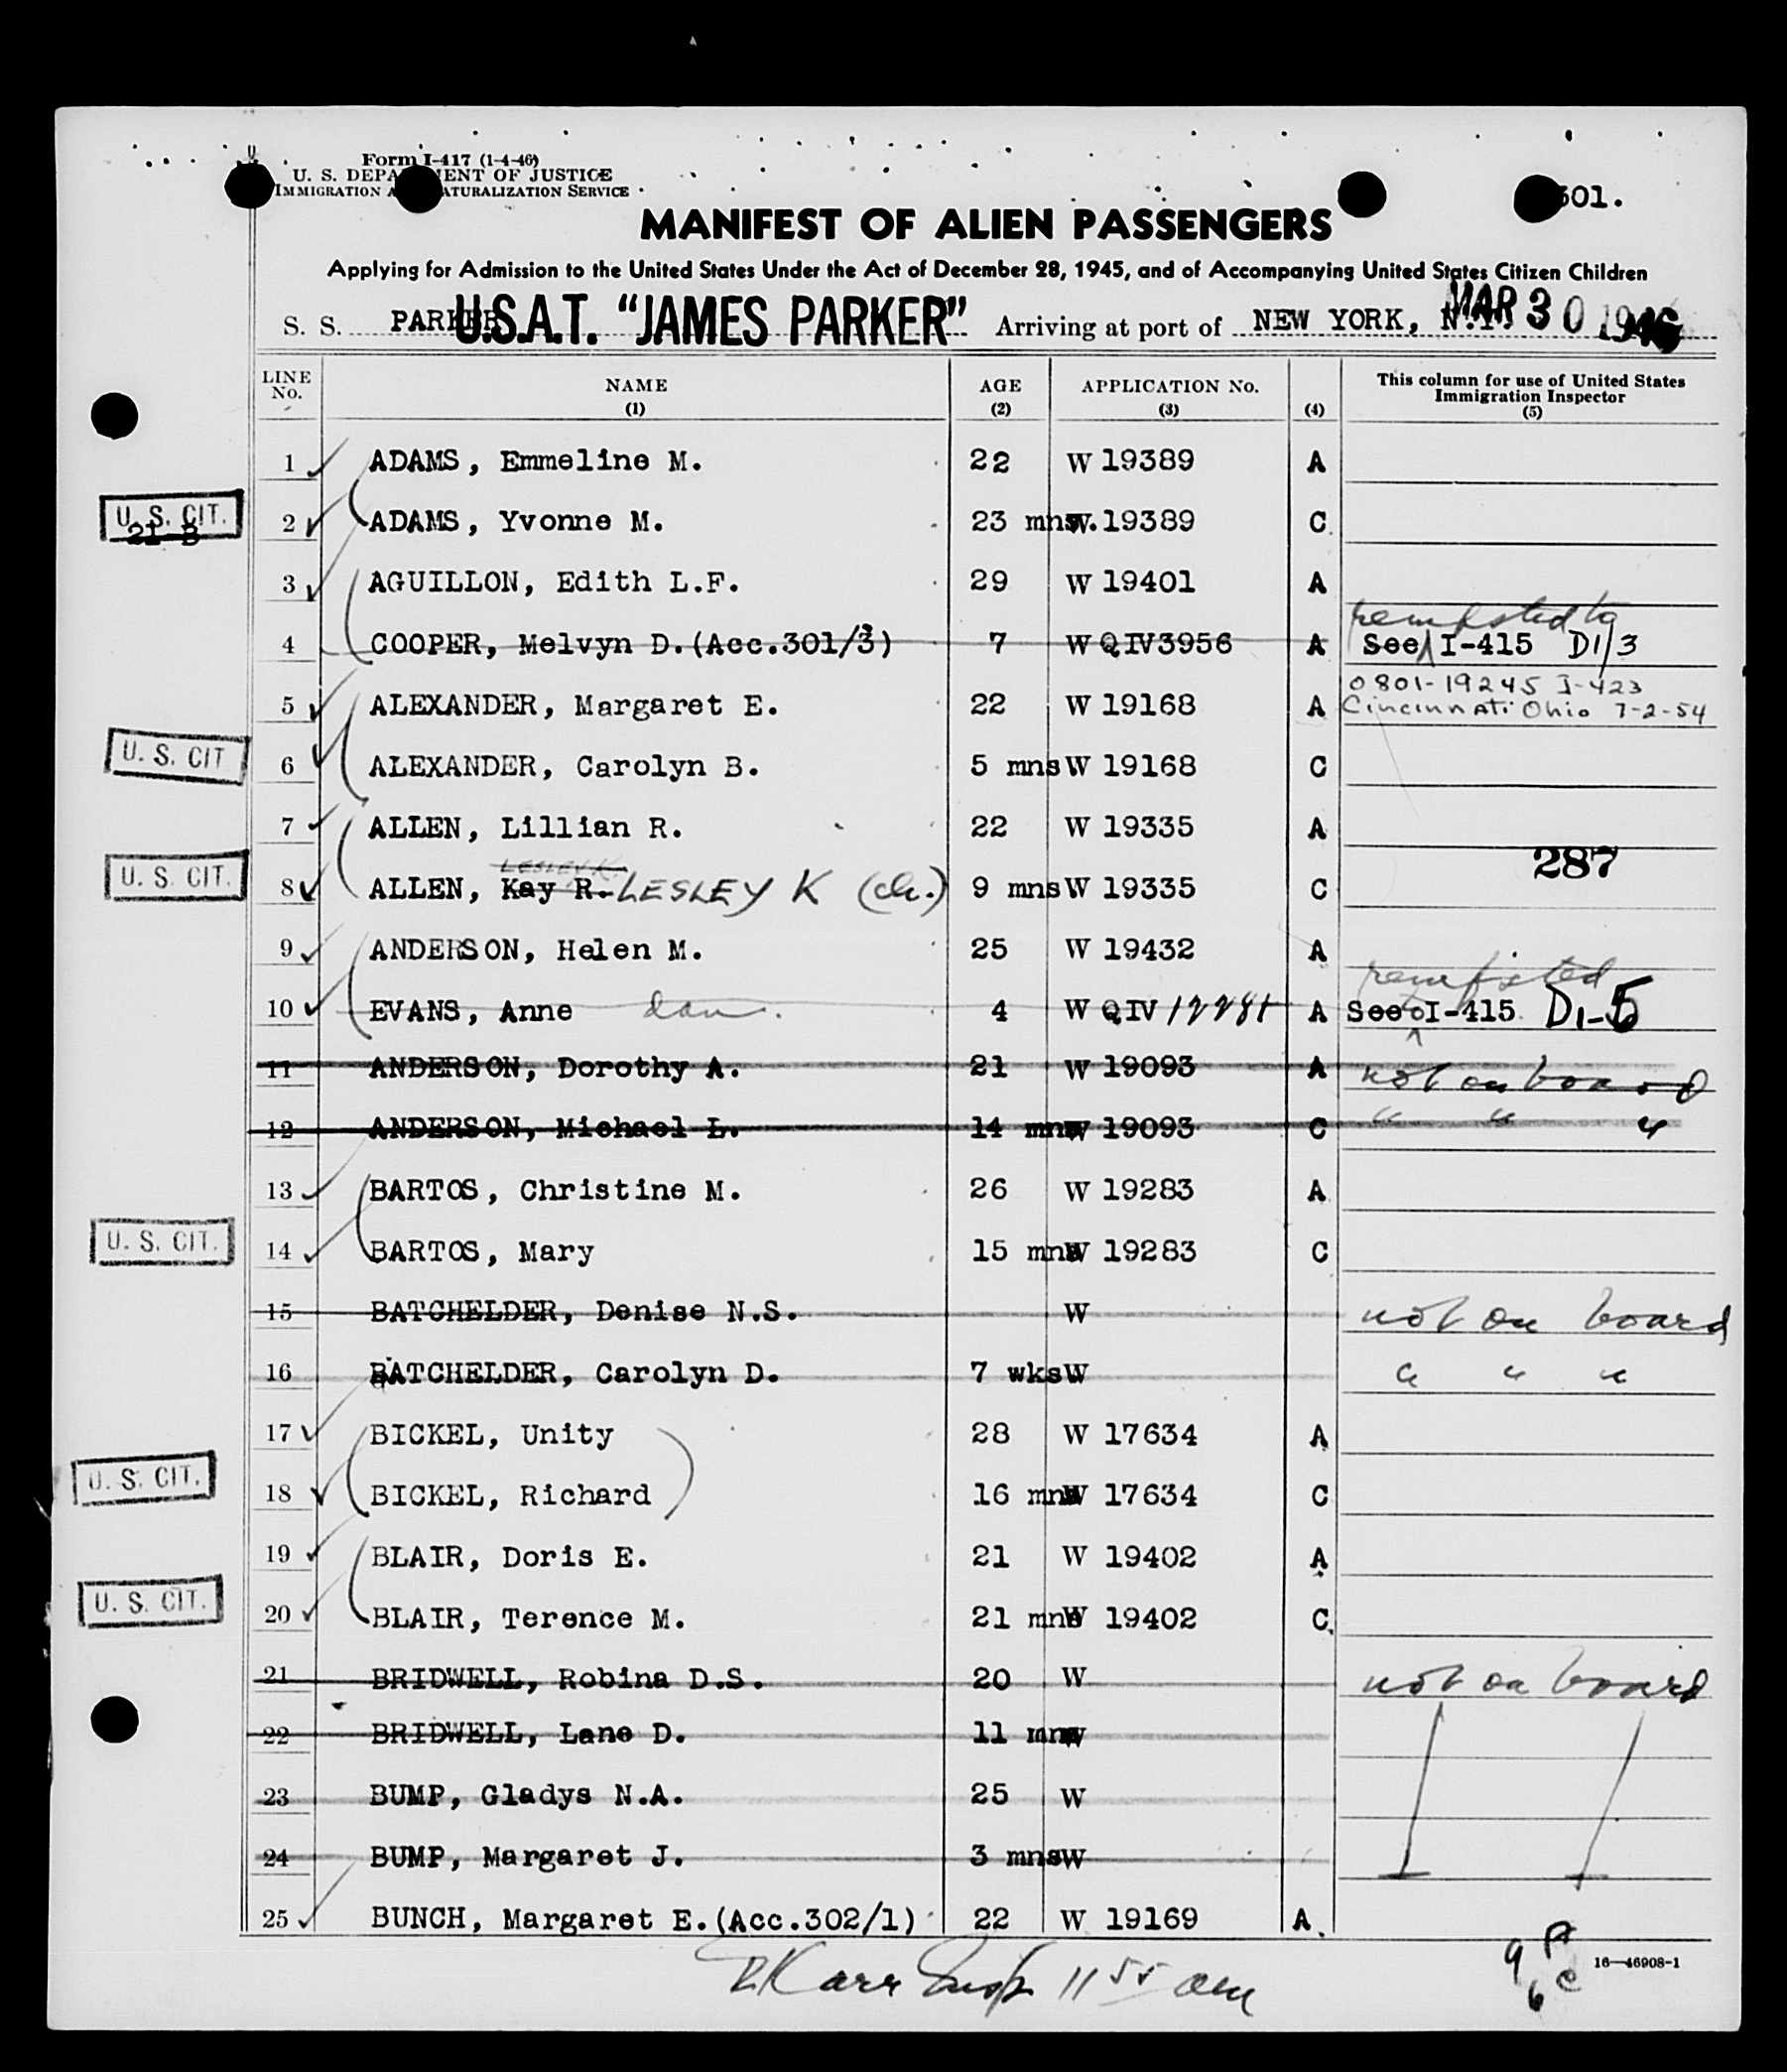 Form I-417 (1-4-46)
U. S. DEPARTMENT OF JUSTICE
IMMIGRATION AND NATURALIZATION SERVICE
301.
MANIFEST OF ALIEN PASSENGERS
Applying for Admission to the United States Under the Act of December 28, 1945, and of Accompanying United States Citizen Children
S. S. PARKER U.S.A.T. "JAMES PARKER" Arriving at port of NEW YORK, N.Y. MAR 30 1946
LINE No. NAME (1) AGE (2) APPLICATION No. (3) (4) This column for use of United States Immigration Inspector (5)
1 ADAMS, Emmeline M. 22 W 19389 A
U. S. CIT. 21-B 2 ADAMS, Yvonne M. 23 mns. W 19389 C
3 AGUILLON, Edith L.F. 29 W 19401 A
4 COOPER, Melvyn D.(Acc.301/3) 7 W QIV3956 A See remfsted to I-415 D1/3
5 ALEXANDER, Margaret E. 22 W 19168 A 0801-19245 I-423 Cincinnati Ohio 7-2-54
U. S. CIT 6 ALEXANDER, Carolyn B. 5 mns W 19168 C
7 ALLEN, Lillian R. 22 W 19335 A
287
LESLEY K.
U. S. CIT. 8 ALLEN, Kay R. LESLEY K (ch.) 9 mns W 19335 C
9 ANDERSON, Helen M. 25 W 19432 A
10 EVANS, Anne dau. 4 W QIV 12281 A See remfsted to I-415 D1-5
11 ANDERSON, Dorothy A. 21 W 19093 A not on board
12 ANDERSON, Michael L. 14 mns W 19093 C " " "
13 BARTOS, Christine M. 26 W 19283 A
U. S. CIT. 14 BARTOS, Mary 15 mns W 19283 C
15 BATCHELDER, Denise N.S. W not on board
16 BATCHELDER, Carolyn D. 7 wks W " " "
17 BICKEL, Unity 28 W 17634 A
U. S. CIT. 18 BICKEL, Richard 16 mns W 17634 C
19 BLAIR, Doris E. 21 W 19402 A
U. S. CIT. 20 BLAIR, Terence M. 21 mns W 19402 C
21 BRIDWELL, Robina D.S. 20 W not on board
22 BRIDWELL, Lane D. 11 mns W
23 BUMP, Gladys N.A. 25 W
24 BUMP, Margaret J. 3 mns W
25 BUNCH, Margaret E.(Acc.302/1) 22 W 19169 A
Karr Insp 11 55 am
9 A
6 C
16—46908-1